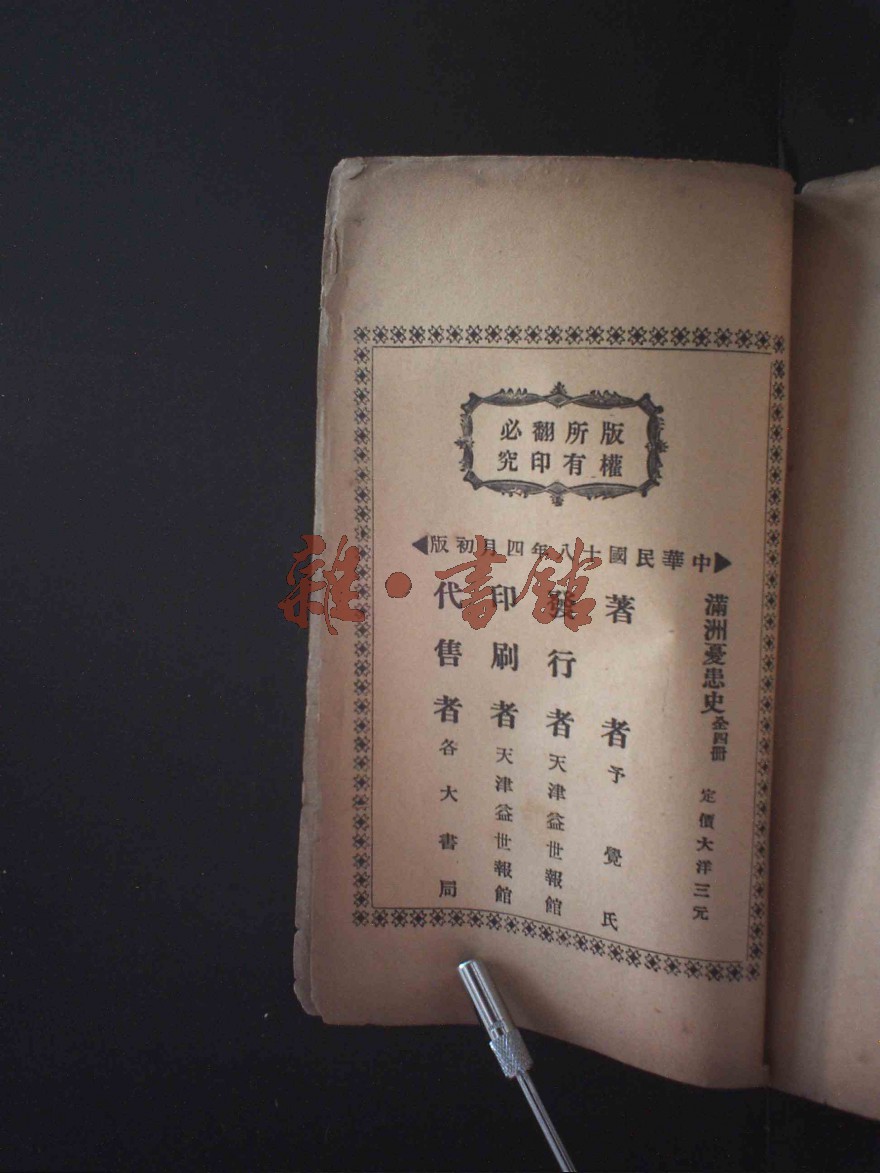 版權
所有
翻印
必究
中華民國十八年四月初版
滿洲憂患史 全四冊 定價大洋三元
著者 予覺氏
發行者 天津益世報館
印刷者 天津益世報館
代售者 各大書局
雜·書館